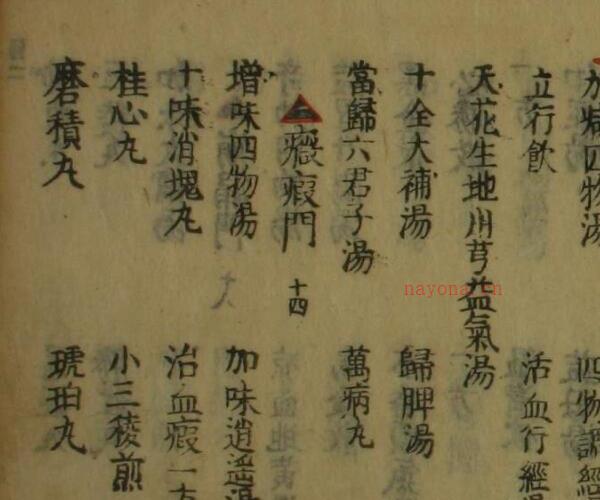 加減四物湯 四物調經
立行飲 活血行經
天花生地川芎益氣湯
十全大補湯 歸脾湯
當歸六君子湯 萬病丸
癥瘕門 十四
增味四物湯 加味逍遙湯
十味消塊丸 治血瘕一方
桂心丸 小三稜煎
磨積丸 琥珀丸
nayona.cn